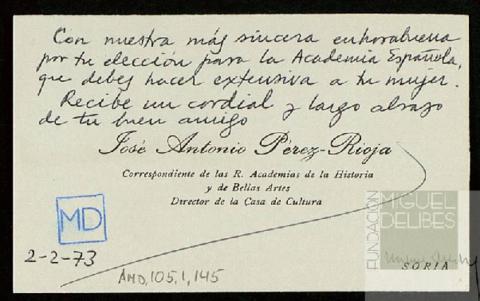 Con nuestra más sincera enhorabuena
por tu elección para la Academia Española,
que debes hacer extensiva a tu mujer.
Recibe un cordial y largo abrazo
de tu buen amigo
José Antonio Pérez-Rioja
Correspondiente de las R. Academias de la Historia
y de Bellas Artes
Director de la Casa de Cultura
MD
2-2-73
AMD,105,1,145
SORIA
FUNDACIÓN
MIGUEL
DELIBES